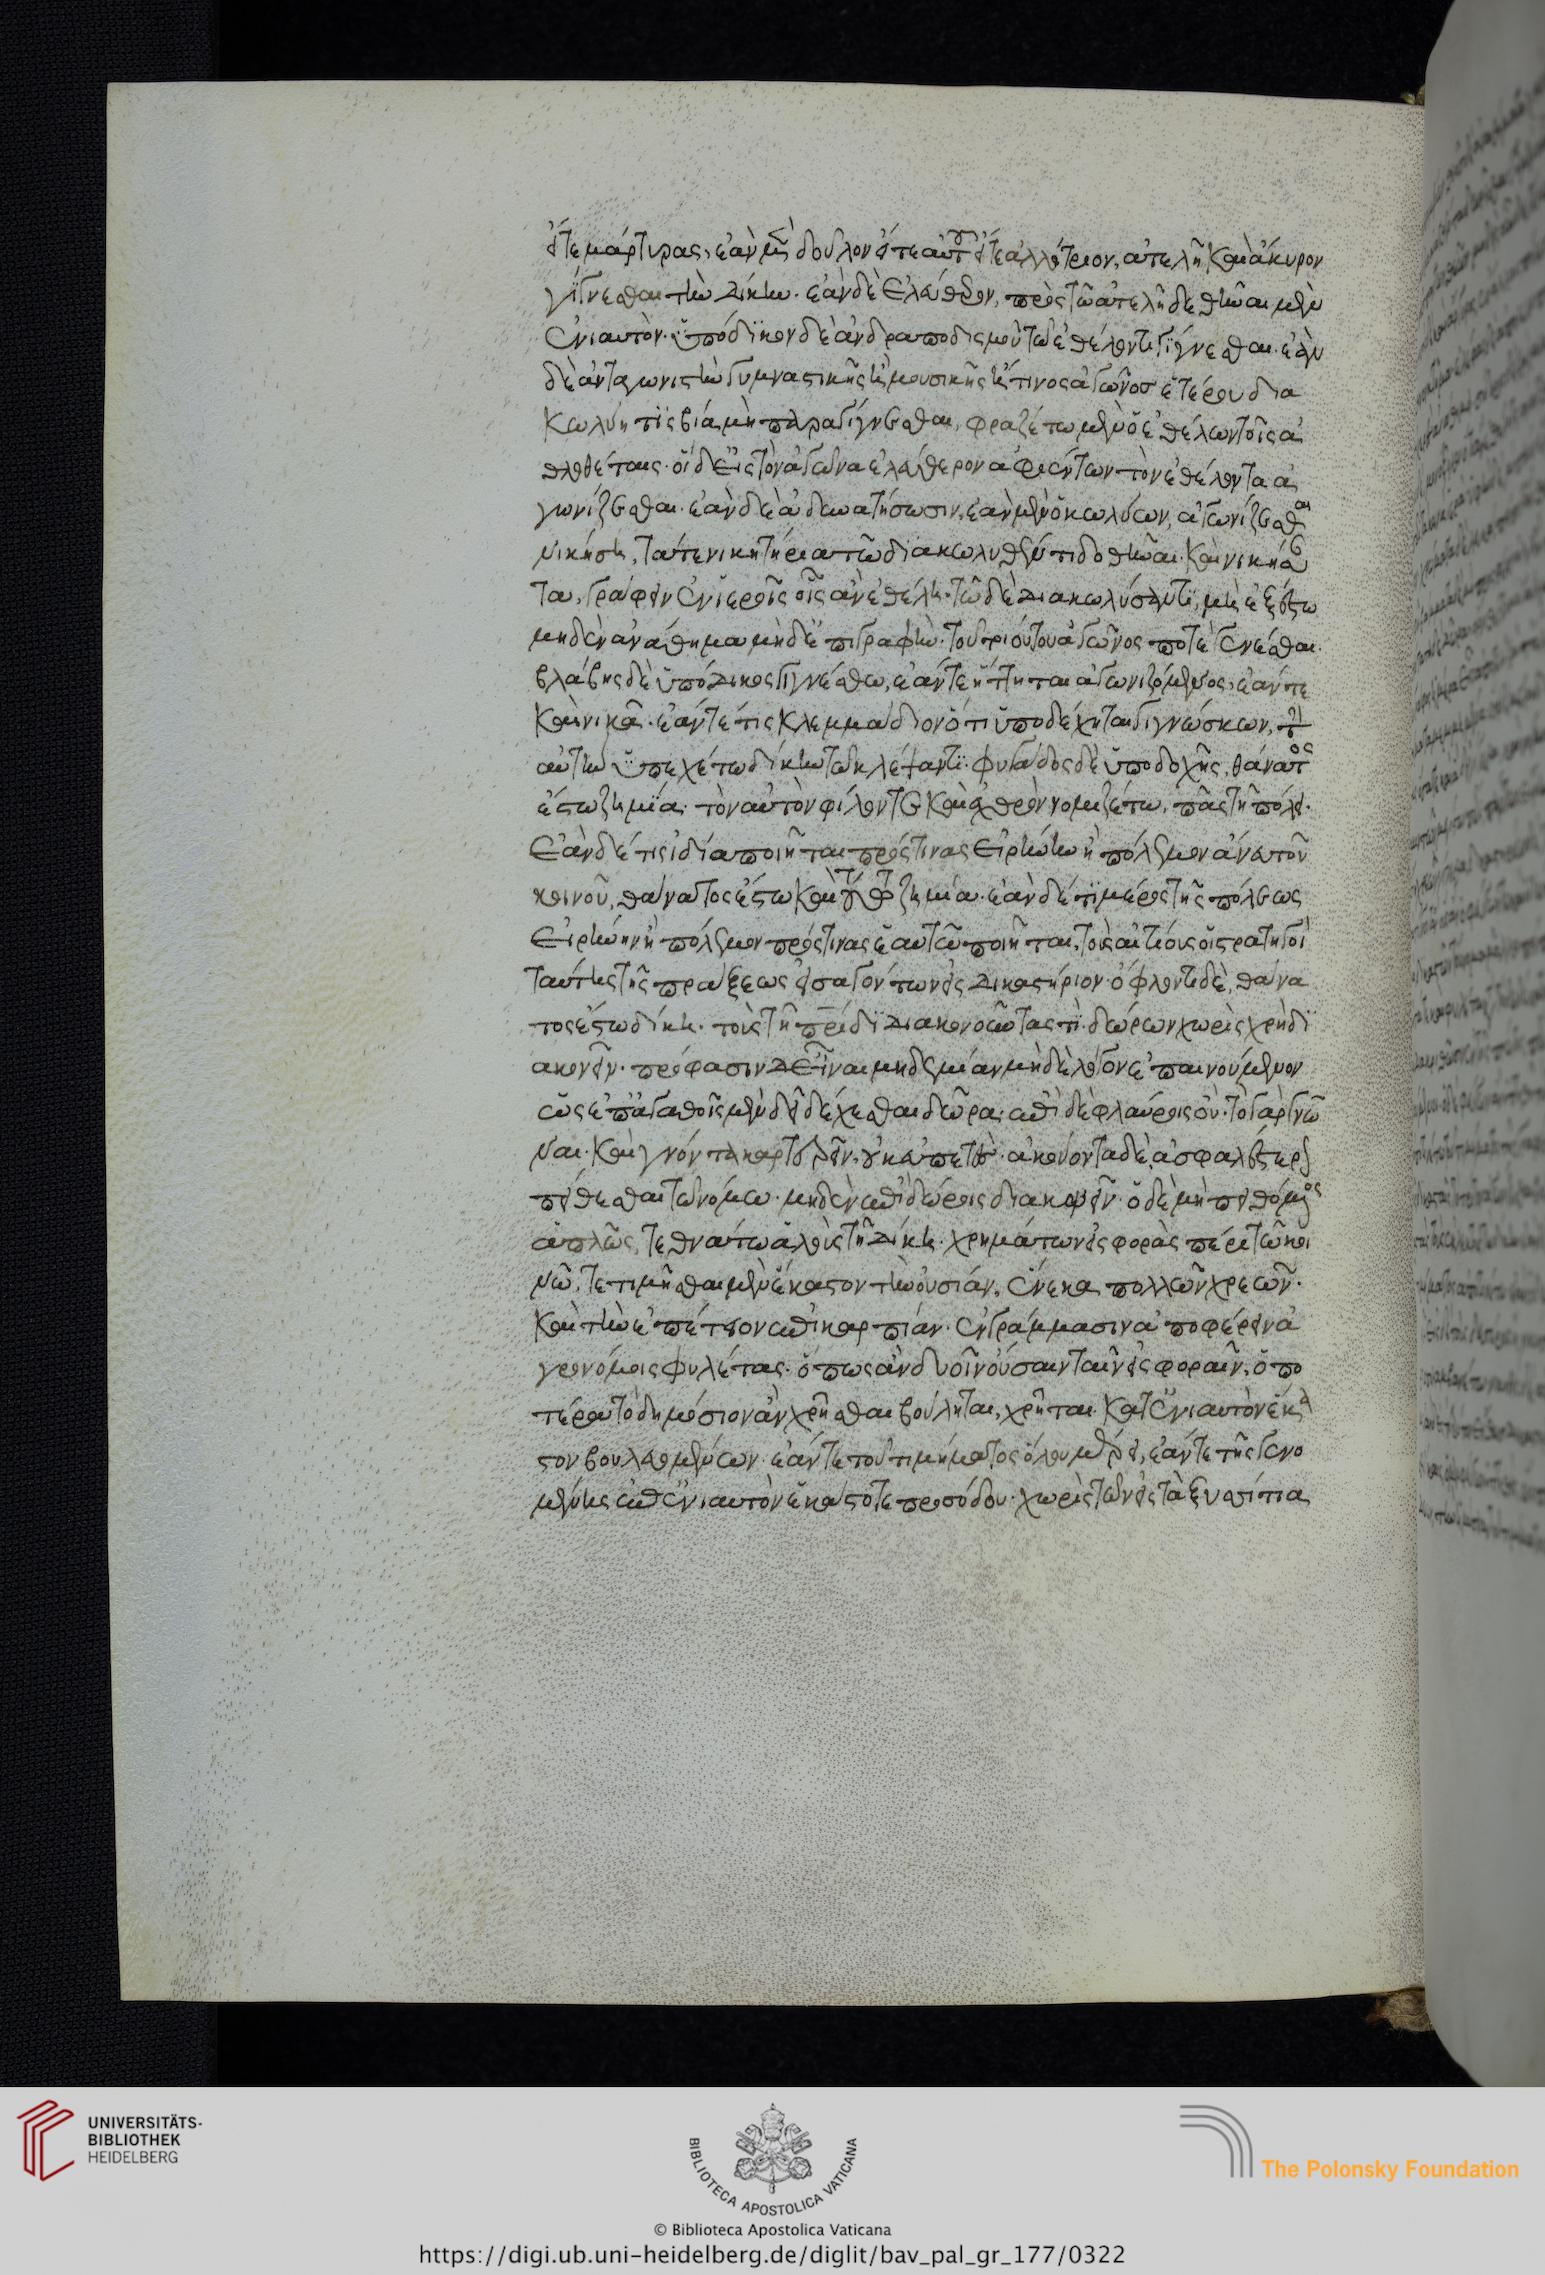 εἴτε μάρτυρας, ἐὰν μὲν δοῦλον εἴτε αὐτοῦ εἴτε ἀλλότριον, ἀτελῆ καὶ ἄκυρον
γίγνεσθαι τὴν δίκην. ἐὰν δὲ ἐλεύθερον, πρὸς τῶ ἀτελῆ δεθῆναι μὲν
ἐνιαυτὸν. ὑπόδικον δὲ ἀνδραποδισμοῦ τῶ ἐθέλοντι γίγνεσθαι. ἐὰν
δὲ ἀνταγωνιστὴν γυμναστικῆς ἢ μουσικῆς ἤ τινος ἀγῶνος ἑτέρου δια
κωλύη τὶς βία μὴ παραγίγνεσθαι, φραζέτω μὲν ὁ ἐθέλων τοῖς ἀ
θλοθέταις. οἱ δ' εἰς τὸν ἀγῶνα ἐλεύθερον ἀφιέντων τὸν ἐθέλοντα ἀ
γωνίζεσθαι. ἐὰν δὲ ἀδυνατήσωσιν, ἐὰν μὲν ὁ κωλύων ἀγωνίζεσθαι
νικήση, τά τε νικητήρια τῶ διακωλυθέντι διδόναι καὶ νικήσαν
τα, γράφειν ἐν ἱεροῖς οἷς ἂν ἐθέλη. τῶ δὲ διακωλύσαντι, μὴ ἐξέστω
μηδὲν ἀνάθημα μηδὲ ἐπιγραφὴν τοῦ τοιούτου ἀγῶνος ποτὲ γενέσθαι.
βλάβης δὲ ὑπόδικος γιγνέσθω, ἐάν τε ἡττῆται ἀγωνιζόμενος, ἐάν τε
καὶ νικᾶ. ἐάν τέ τις κλεμμάδιον ὁτιοῦν ὑποδέχηται γιγνώσκων, τὴν
αὐτὴν ὑπεχέτω δίκην τῶ κλέψαντι. φυγάδος δὲ ὑποδοχῆς, θάνατος
ἔστω ζημία. τὸν αὐτὸν φίλον τε καὶ ἐχθρὸν νομιζέτω πᾶς τῆ πόλει.
Ἐὰν δέ τις ἰδία ποιῆται πρός τινας εἰρήνην ἢ πόλεμον ἄνευ τοῦ
κοινοῦ, θάνατος ἔστω καὶ τούτω ζημία. ἐὰν δέ τι μέρος τῆς πόλεως
εἰρήνην ἢ πόλεμον πρός τινας ἑαυτῶ ποιῆται, τοὺς αἰτίους οἱ στρατηγοὶ
ταύτης τῆς πράξεως εἰσαγόντων εἰς δικαστήριον. ὀφλόντι δὲ, θάνα
τος ἔστω δίκη. τοὺς τῆ πατρίδι διακονοῦντάς τι δώρων χωρὶς χρὴ δι
ακονεῖν. πρόφασιν δ' εἶναι μηδεμίαν μηδὲ λόγον ἐπαινούμενον
ὡς ἐπ' ἀγαθοῖς μὲν δεῖ δέχεσθαι δῶρα. ἐπὶ δὲ φλαύροις οὔ. τὸ γὰρ γνῶ
ναι. καὶ γνόντα καρτερεῖν, οὐκ εὐπετὲς. ἀκούοντα δὲ ἀσφαλέστερον
πείθεσθαι τῶ νόμω. μηδὲν ἐπὶ δώροις διακονεῖν. ὁ δὲ μὴ πειθόμενος
ἁπλῶς τεθνάτω ἁλοὺς τῆ δίκη. χρημάτων εἰσφορᾶς πέρι τῶ κοι
νῶ, τετιμῆσθαι μὲν ἕκαστον τὴν οὐσίαν, ἕνεκα πολλῶν χρεών.
καὶ τὴν ἐπέτειον ἐπικαρπίαν. ἐν γράμμασιν ἀποφέρειν ἀ
γρονόμοις φυλέτας. ὅπως ἂν δυοῖν οὔσαιν ταῖν εἰσφοραῖν, ὁπο
τέρα τὸ δημόσιον ἂν χρῆσθαι βούληται, χρῆται κατ' ἐνιαυτὸν ἕκα
στον βουλευομένων. ἐάν τε τοῦ τιμήματος ὅλου μέρει, ἐάν τε τῆς γενο
μένης ἐπ' ἐνιαυτὸν ἑκάστοτε προσόδου. χωρὶς τῶν εἰς τὰ ξυσσίτια
UNIVERSITÄTS-
BIBLIOTHEK
HEIDELBERG
BIBLIOTECA APOSTOLICA VATICANA
The Polonsky Foundation
© Biblioteca Apostolica Vaticana
https://digi.ub.uni-heidelberg.de/diglit/bav_pal_gr_177/0322